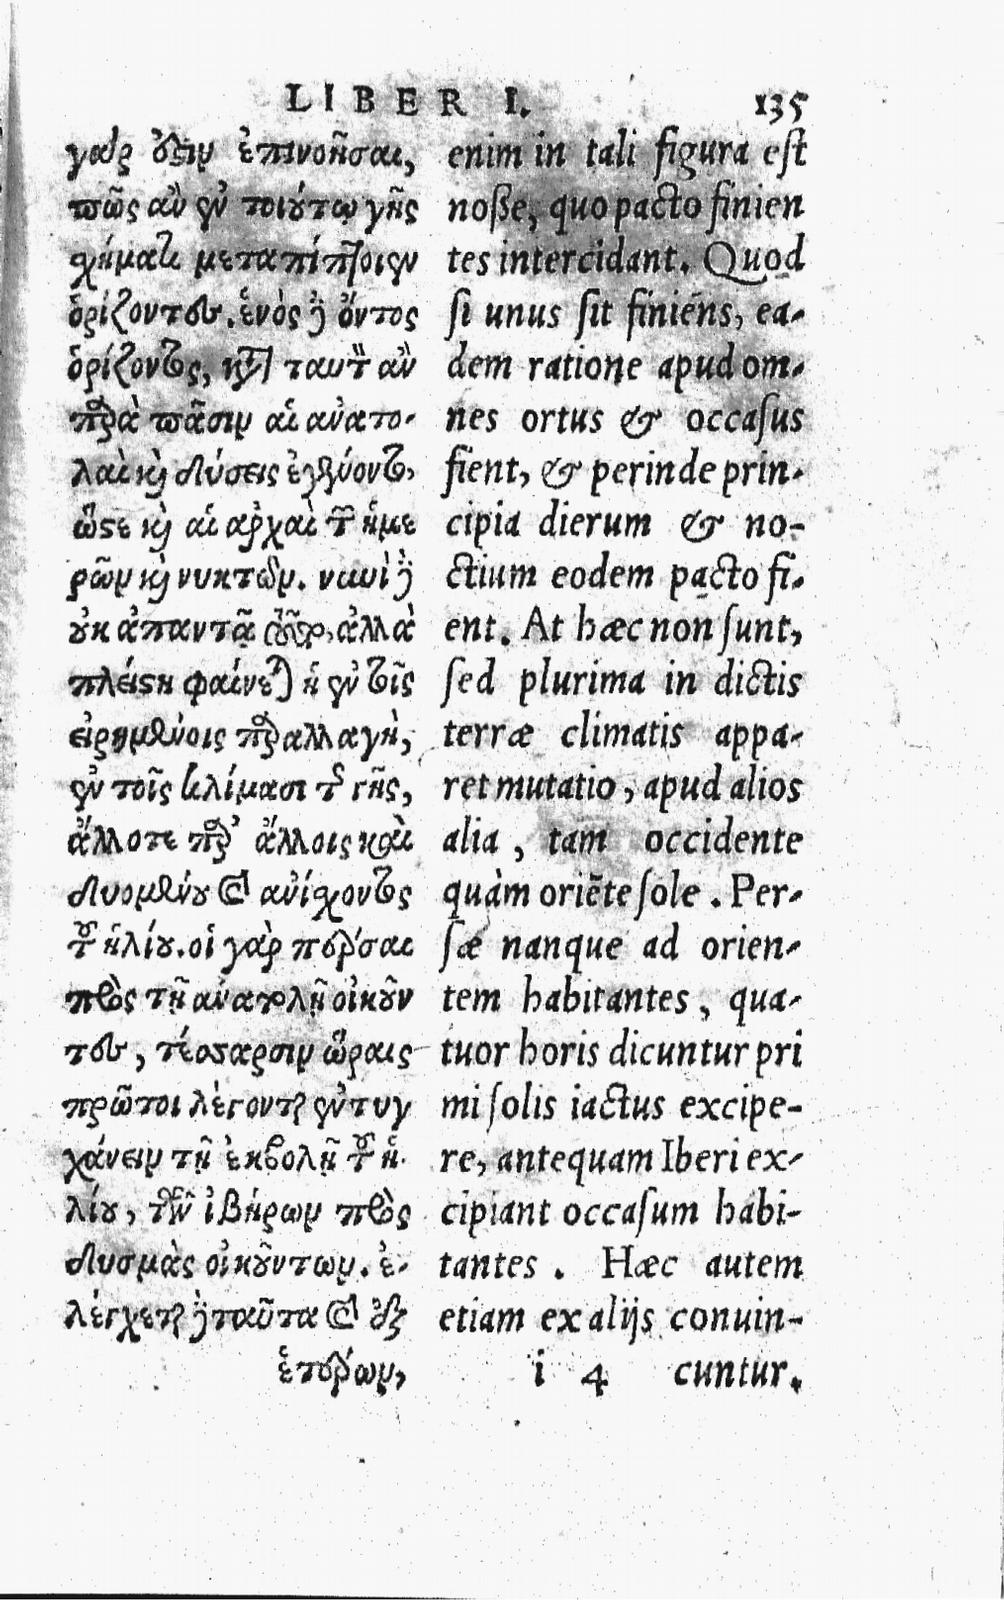 LIBER I. 135
γαρ ὅξιν ἐπινοῆσαι,
πῶς ἂν ἐν τοιούτῳ γῆς
χήματι μεταπίπτοιεν
ὁρίζοντες. ἑνὸς δὲ ὄντος
ὁρίζοντος, κατὰ ταυτὰ ἂν
παρὰ πᾶσιν αἱ ἀνατο-
λαὶ καὶ δύσεις ἐγίνοντο,
ὥστε καὶ αἱ ἀρχαὶ τῶν ἡμε
ρῶν καὶ νυκτῶν. νυνὶ δὲ
οὐκ ἀπαντᾷ ἀλλὰ
πλείστη φαίνεται ἡ ἐν τοῖς
εἰρημένοις παραλλαγὴ,
ἐν τοῖς κλίμασι τῆς γῆς,
ἄλλοτε παρ’ ἄλλοις καὶ
δυομένου καὶ ἀνίσχοντος
τοῦ ἡλίου. οἱ γὰρ πέρσαι
πρὸς τῇ ἀνατολῇ οἰκοῦν
τες, τέσσαρσιν ὥραις
πρῶτοι λέγονται ἐντυγ
χάνειν τῇ ἐκβολῇ τοῦ ἡ-
λίου, τῶν ἰβήρων πρὸς
δυσμὰς οἰκούντων. ἐ-
λέγχεται δὲ ταῦτα καὶ ἐξ
ἑτέρων,
enim in tali figura est
noße, quo pacto finien
tes intercidant. Quod
si unus sit finiens, ea-
dem ratione apud om-
nes ortus & occasus
fient, & perinde prin-
cipia dierum & no-
ctium eodem pacto fi-
ent. At hæc non sunt,
sed plurima in dictis
terræ climatis appa-
ret mutatio, apud alios
alia, tam occidente
quàm oriẽte sole. Per-
sæ nanque ad orien-
tem habitantes, qua-
tuor horis dicuntur pri
mi solis iactus excipe-
re, antequam Iberi ex-
cipiant occasum habi-
tantes. Hæc autem
etiam ex alijs conuin-
i 4 cuntur.